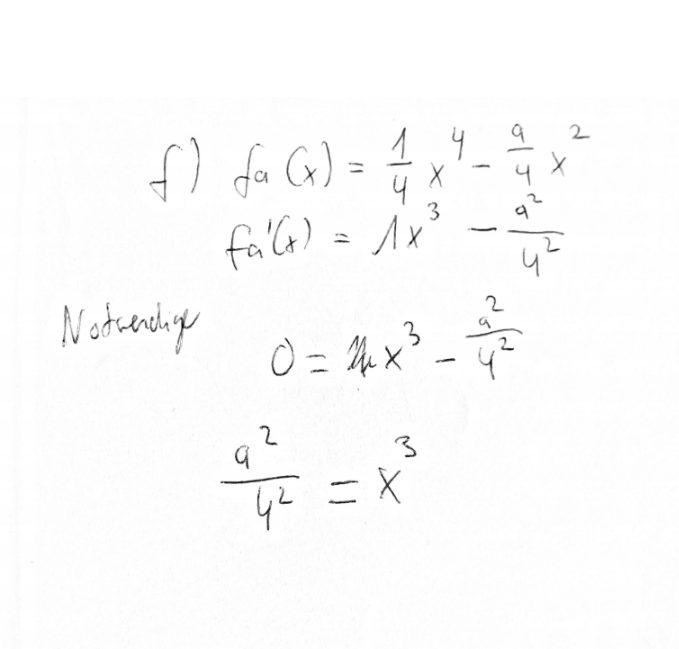 f) fa (x) = 1/4 x^4 - a/4 x^2
fa'(x) = 1x^3 - a^2/4^2
Notwendige
0 = x^3 - a^2/4^2
a^2/4^2 = x^3